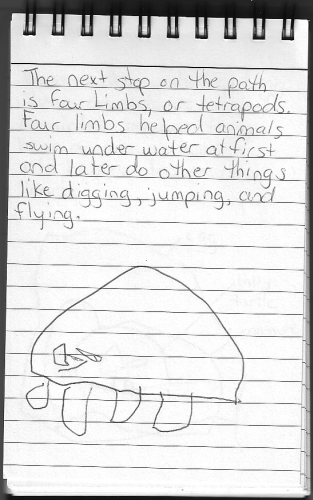 The next stop on the path
is four Limbs, or tetrapods.
Four limbs helped animals
swim under water at first
and later do other things
like digging, jumping, and
flying.